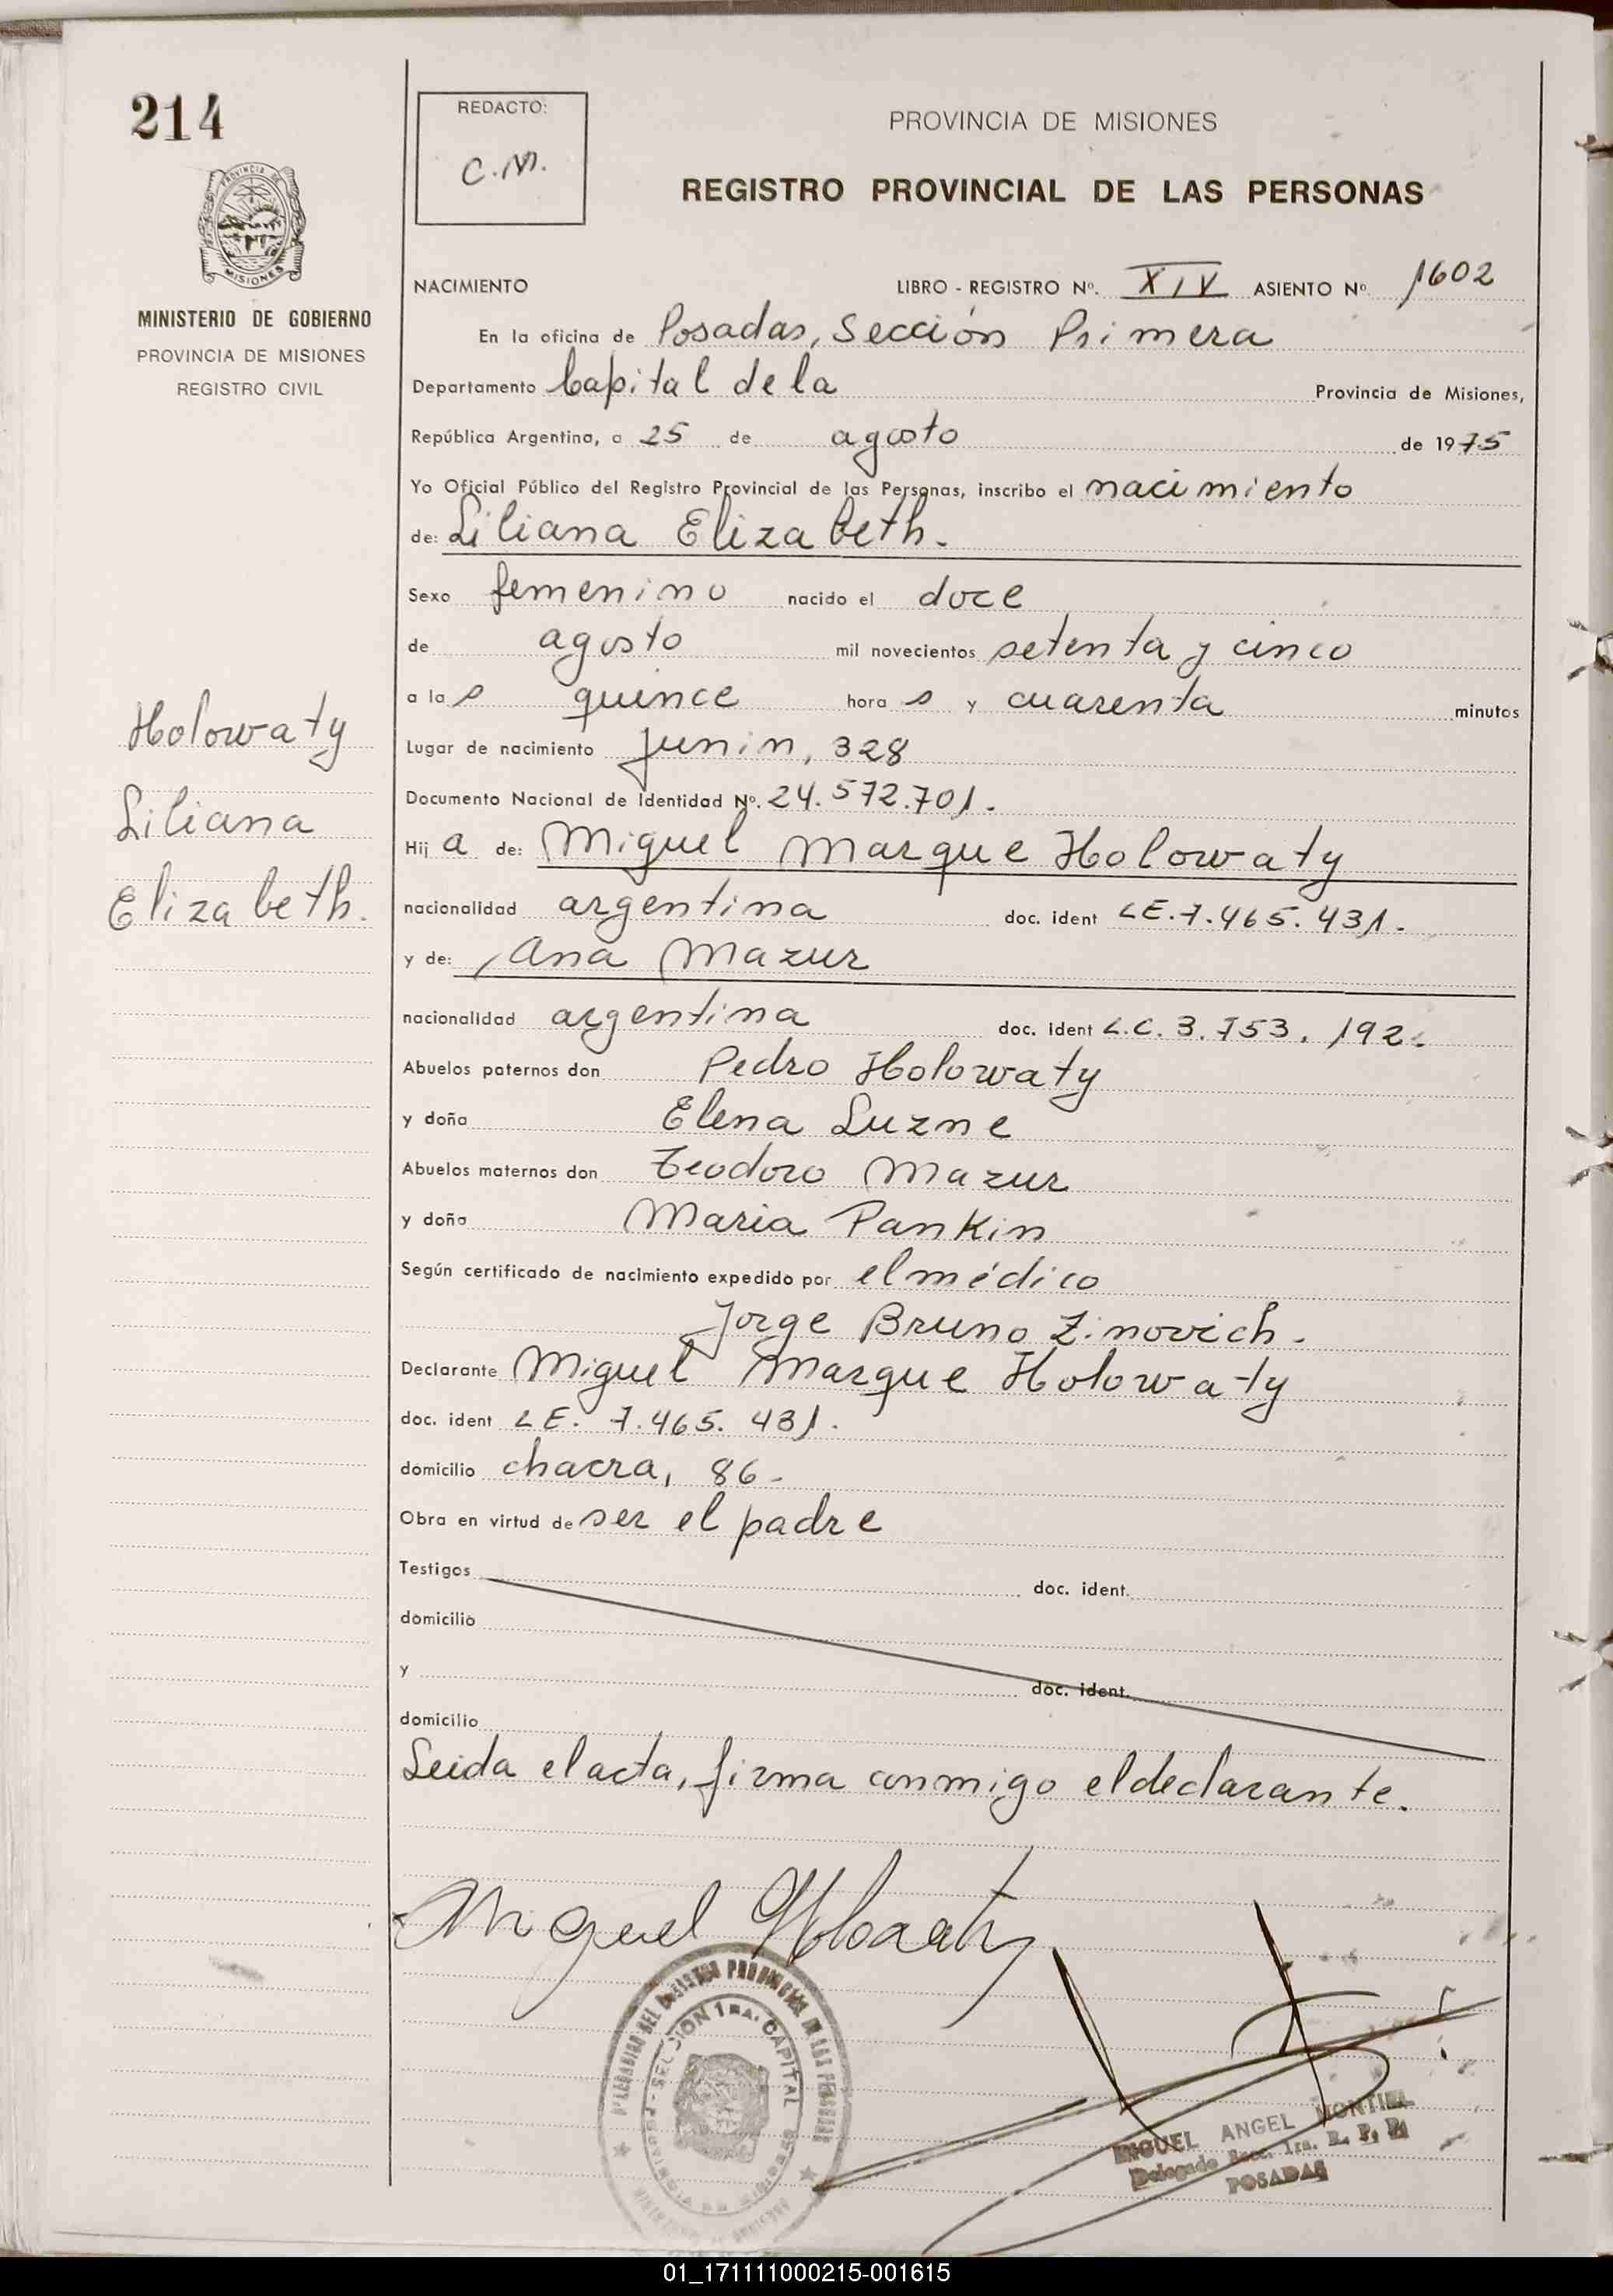 214
REDACTO:
C.M.
PROVINCIA DE MISIONES
REGISTRO PROVINCIAL DE LAS PERSONAS
MISIONES
MINISTERIO DE GOBIERNO
PROVINCIA DE MISIONES
REGISTRO CIVIL
NACIMIENTO LIBRO - REGISTRO Nº. XIV ASIENTO Nº 1602
En la oficina de Posadas, Sección Primera
Departamento Capital de la Provincia de Misiones,
República Argentina, a 25 de agosto de 1975
Yo Oficial Público del Registro Provincial de las Personas, inscribo el nacimiento
de: Liliana Elizabeth.
Sexo femenino nacido el doce
de agosto mil novecientos setenta y cinco
a las quince horas y cuarenta minutos
Holowaty
Liliana
Elizabeth.
Lugar de nacimiento Junin, 328
Documento Nacional de Identidad Nº. 24.572.701.
Hija de: Miguel Marque Holowaty
nacionalidad argentina doc. ident LE. 7.465.431.
y de: Ana Mazur
nacionalidad argentina doc. ident L.C. 3.753.192.
Abuelos paternos don Pedro Holowaty
y doña Elena Luzne
Abuelos maternos don Teodoro Mazur
y doña Maria Pankin
Según certificado de nacimiento expedido por el médico
Jorge Bruno Zinovich.
Declarante Miguel Marque Holowaty
doc. ident LE. 7.465.431.
domicilio chacra, 86-
Obra en virtud de ser el padre
Testigos doc. ident.
domicilio
y doc. ident.
domicilio
Leida el acta, firma conmigo el declarante.
Miguel Holowaty
SECCION 1RA. CAPITAL
MIGUEL ANGEL MONTIEL
Delegado Secc. 1ra. R. P. P.
POSADAS
01_171111000215-001615